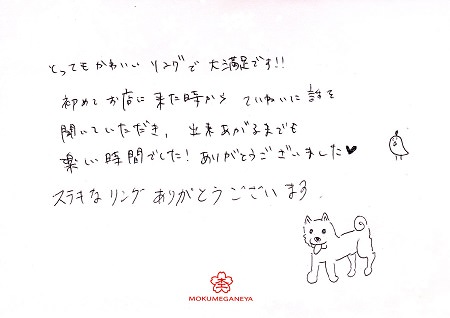 とってもかわいいリングで大満足です!!
初めてお店に来た時からていねいに話を
聞いていただき、出来あがるまでも
楽しい時間でした!ありがとうございました♥
ステキなリングありがとうございます
MOKUMEGANEYA